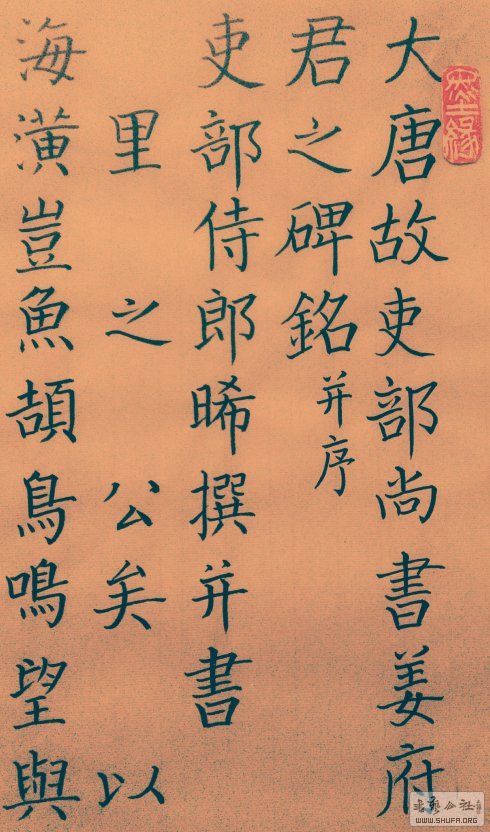 大唐故吏部尚書姜府
君之碑銘并序
吏部侍郎晞撰并書
里之公矣以
海潢豈魚頡鳥鳴望與
WWW.SHUFA.ORG